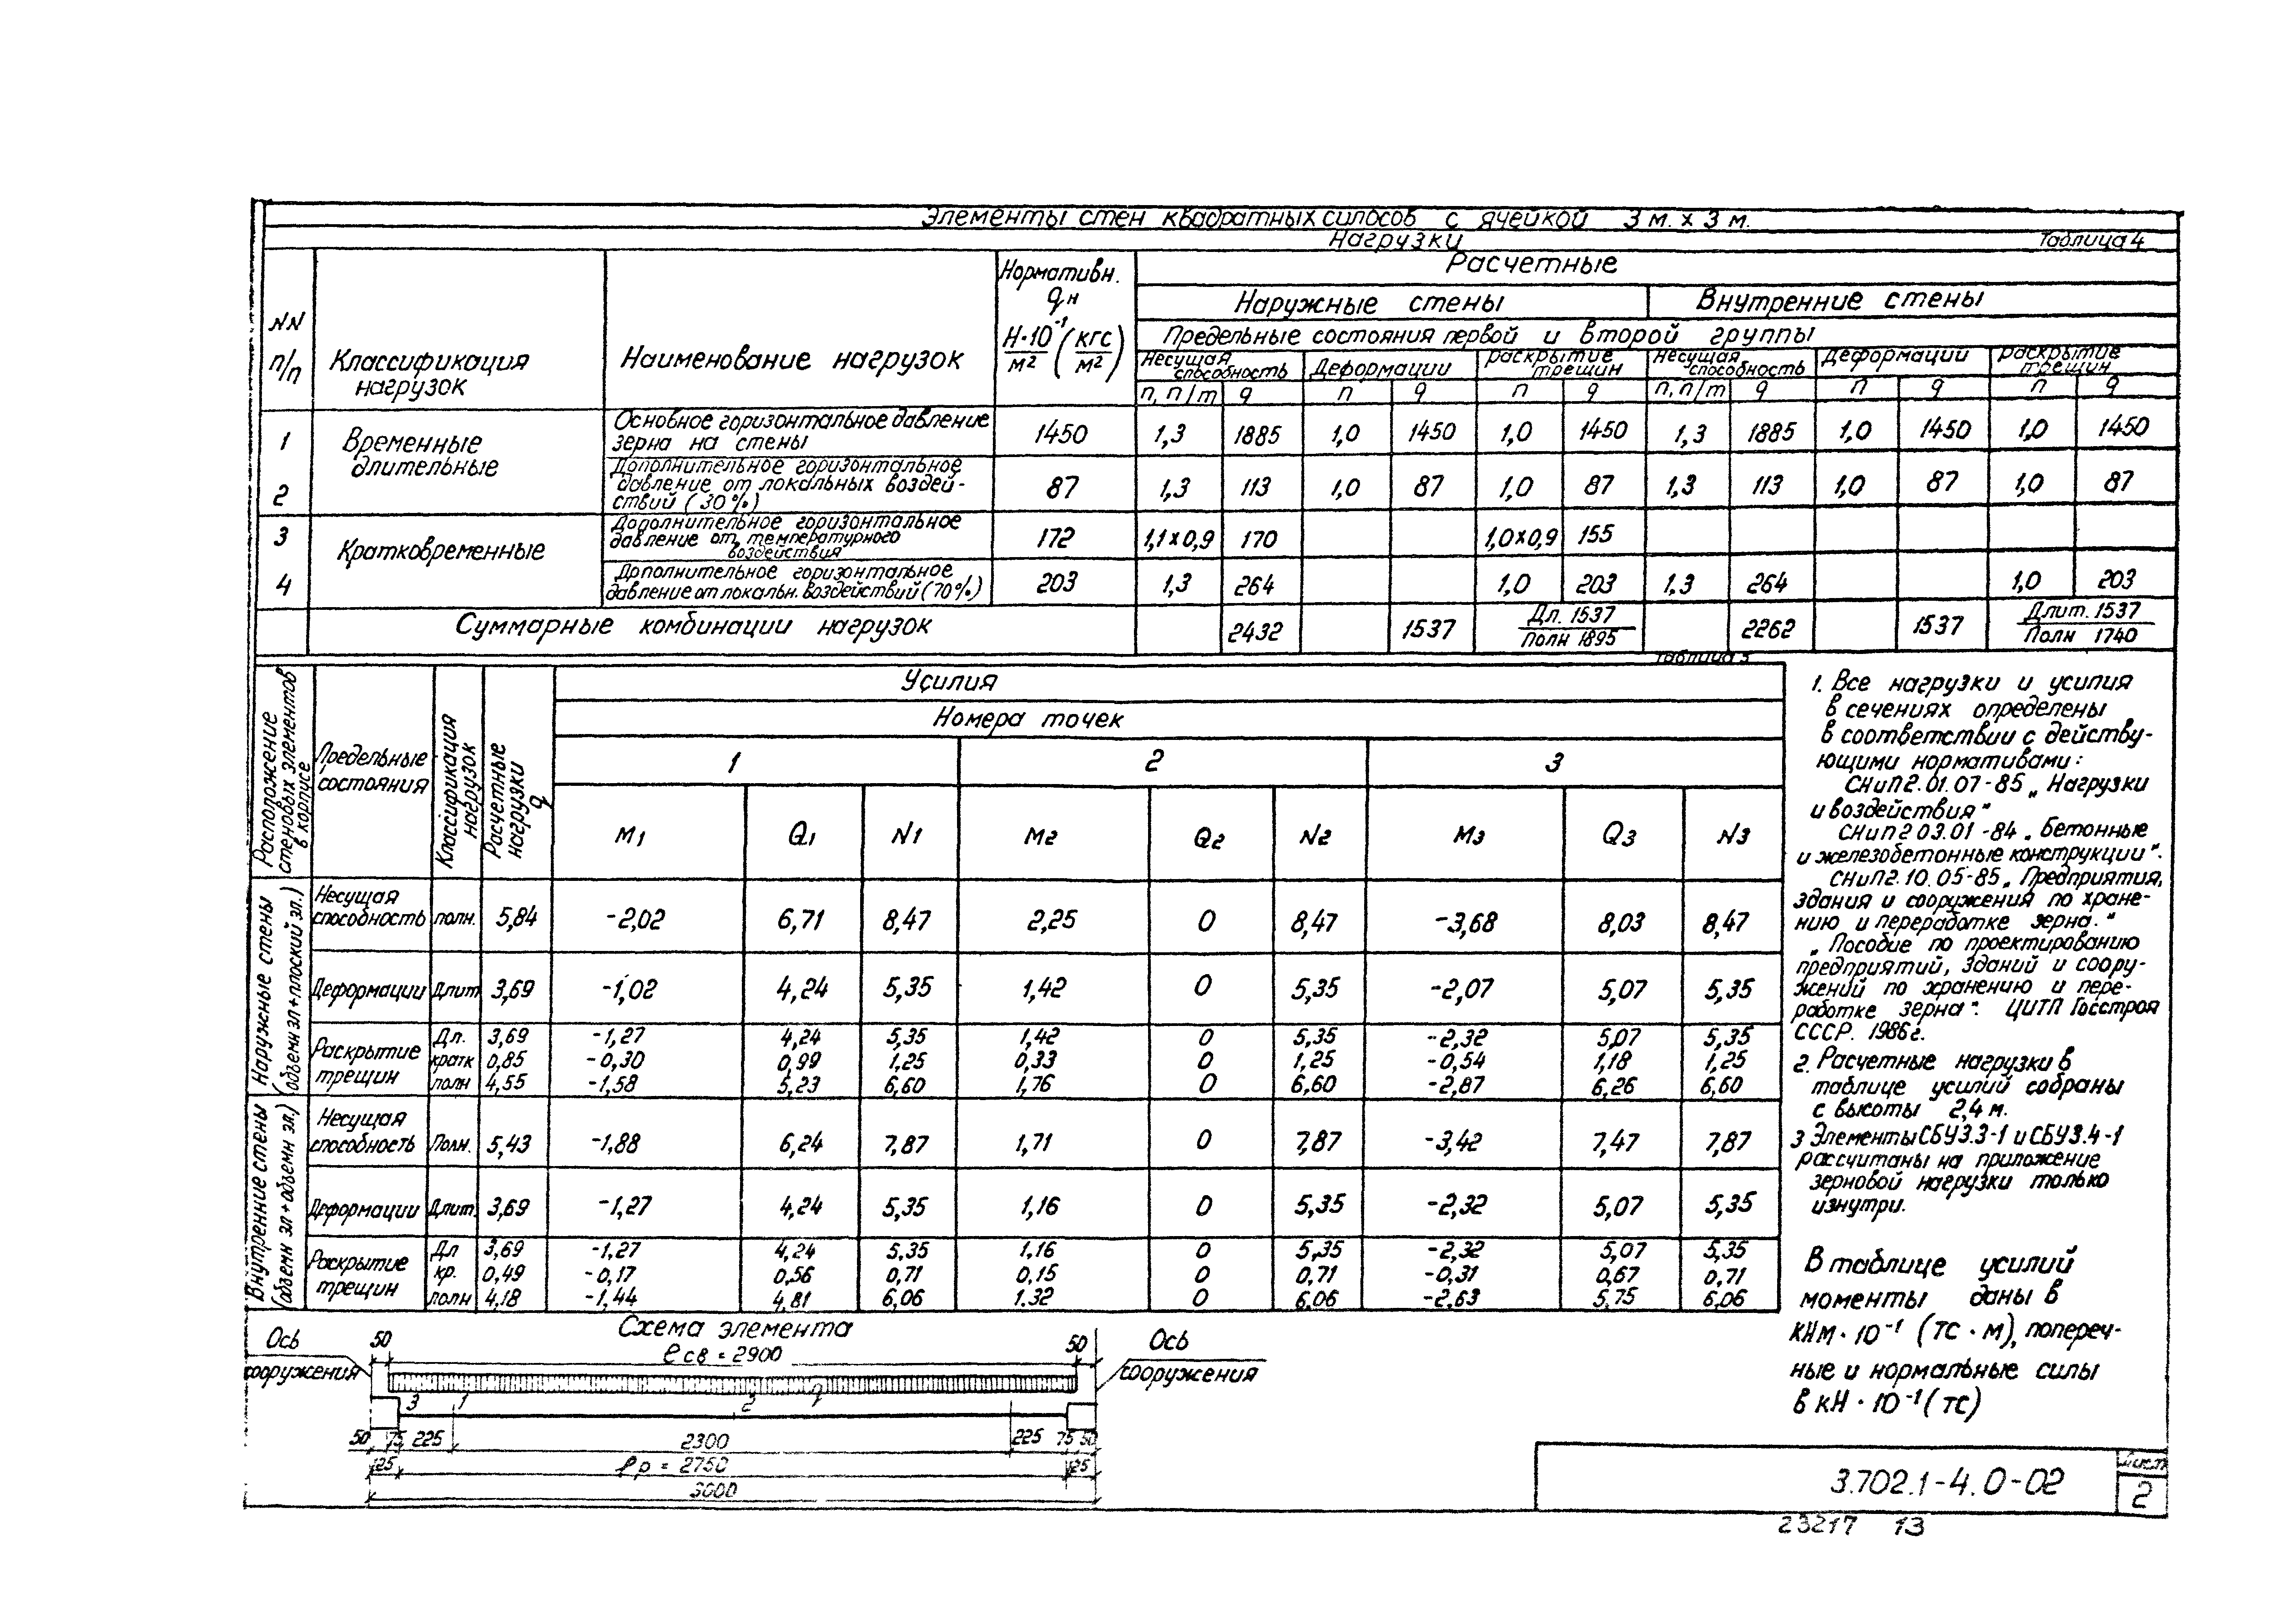 Элементы стен квадратных силосов с ячейкой 3 м. х 3 м.
Нагрузки
Таблица 4
NN п/п
Классификация нагрузок
Наименование нагрузок
Нормативн. qн Н·10⁻¹/м² (кгс/м²)
Расчетные
Наружные стены Внутренние стены
Предельные состояния первой и второй группы
Несущая способность Деформации Раскрытие трещин Несущая способность Деформации Раскрытие трещин
п, п/т q п q п q п, п/т q п q п q
1 Временные длительные
Основное горизонтальное давление
зерна на стены
1450 1,3 1885 1,0 1450 1,0 1450 1,3 1885 1,0 1450 1,0 1450
2
Дополнительное горизонтальное
давление от локальных воздей-
ствий (30%)
87 1,3 113 1,0 87 1,0 87 1,3 113 1,0 87 1,0 87
3 Кратковременные
Дополнительное горизонтальное
давление от температурного
воздействия
172 1,1х0,9 170 1,0х0,9 155
4
Дополнительное горизонтальное
давление от локальн. воздействий (70%)
203 1,3 264 1,0 203 1,3 264 1,0 203
Суммарные комбинации нагрузок
2432 1537 Дл. 1537 / Полн 1895 2262 1537 Длит. 1537 / Полн 1740
Таблица 5
Расположение стеновых элементов в корпусе
Предельные состояния
Классификация нагрузок
Расчетные нагрузки q
Усилия
Номера точек
1 2 3
М1 Q1 N1 М2 Q2 N2 М3 Q3 N3
Наружные стены (объемн эл + плоский эл.)
Несущая способность полн. 5,84 -2,02 6,71 8,47 2,25 0 8,47 -3,68 8,03 8,47
Деформации Длит 3,69 -1,02 4,24 5,35 1,42 0 5,35 -2,07 5,07 5,35
Раскрытие трещин
Дл. 3,69 -1,27 4,24 5,35 1,42 0 5,35 -2,32 5,07 5,35
кратк 0,85 -0,30 0,99 1,25 0,33 0 1,25 -0,54 1,18 1,25
полн 4,55 -1,58 5,23 6,60 1,76 0 6,60 -2,87 6,26 6,60
Внутренние стены (объемн эл + объемн эл.)
Несущая способность Полн. 5,43 -1,88 6,24 7,87 1,71 0 7,87 -3,42 7,47 7,87
Деформации Длит. 3,69 -1,27 4,24 5,35 1,16 0 5,35 -2,32 5,07 5,35
Раскрытие трещин
Дл 3,69 -1,27 4,24 5,35 1,16 0 5,35 -2,32 5,07 5,35
кр. 0,49 -0,17 0,56 0,71 0,15 0 0,71 -0,31 0,67 0,71
полн 4,18 -1,44 4,81 6,06 1.32 0 6,06 -2,63 5,75 6,06
1. Все нагрузки и усилия
в сечениях определены
в соответствии с действу-
ющими нормативами:
СНиП 2.01.07-85 „Нагрузки
и воздействия"
СНиП 2 03.01-84 „Бетонные
и железобетонные конструкции".
СНиП 2.10.05-85 „Предприятия,
здания и сооружения по хране-
нию и переработке зерна."
„Пособие по проектированию
предприятий, зданий и соору-
жений по хранению и пере-
работке зерна". ЦИТП Госстроя
СССР. 1986г.
2. Расчетные нагрузки в
таблице усилий собраны
с высоты 2,4 м.
3 Элементы СБУ3.3-1 и СБУ3.4-1
рассчитаны на приложение
зерновой нагрузки только
изнутри.
В таблице усилий
моменты даны в
КНм·10⁻¹ (тс·м), попереч-
ные и нормальные силы
в кН·10⁻¹ (тс)
Схема элемента
Ось сооружения 50 ℓсв = 2900 50 Ось сооружения
3 1 2 q
50 75 225 2300 225 75 50
125 ℓр = 2750 125
3000
3.702.1-4.0-02
Лист
2
23217 13